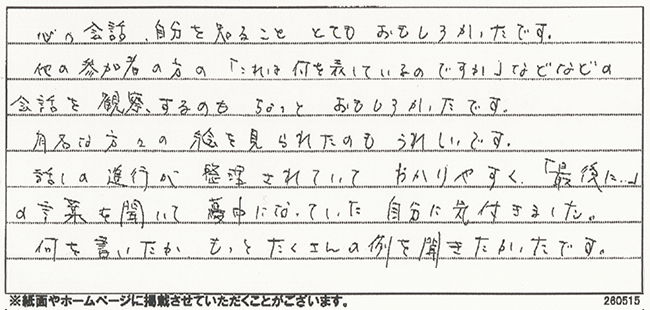 心の会話、自分を知ること とても おもしろかったです。
他の参加者の方の「これは何を表しているのですか」などなどの
会話を観察するのも ちょっと おもしろかったです。
有名な方々の絵を見られたのも うれしいです。
話しの進行が 整理されていて わかりやすく、「最後に…」
の言葉を聞いて 夢中になっていた 自分に気付きました。
何を書いたか もっと たくさんの例を聞きたかったです。
※紙面やホームページに掲載させていただくことがございます。
260515